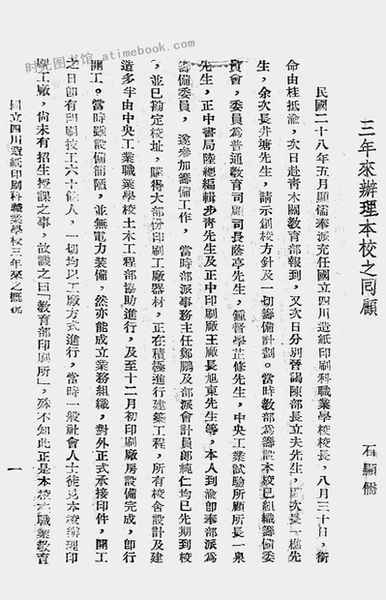 时光图书馆 - atimebook.com
三年來辦理本校之回顧
石顯儒
民國二十八年五月顯儒奉派充任國立四川造紙印刷科職業學校校長,八月三十日,銜
命由桂抵渝,次日赴靑木關敎育部報到,又次日分別晉謁陳部長立夫先生,顧次長一樵先
生,余次長井塘先生,請示創校方針及一切籌備計劃。當時敎部爲籌設本校已組織籌備委
員會,委員爲普通敎育司顧司長蔭亭先生,鍾督學芷修先生,中央工業試驗所顧所長一泉
先生,正中書局陸總編輯步靑先生及正中印刷廠王廠長旭東先生等,本人到渝卽奉部派爲
籌備委員,遂參加籌備工作,當時部派事務主任鄭鵬及部派會計員郎純仁均已先期到校
,並已勘定校址,購得大部份印刷工廠器材,正在積極進行建築工程,所有校舍設計及建
造多半由中央工業職業學校土木工程部協助進行,及至十二月初印刷廠房設備完成,卽行
開工。當時雖設備簡陋,並無電力裝備,然亦能成立業務組織,對外正式承接印件,開工
之日卽有印刷技工六十餘人,一切均以工廠方式進行,當時一般社會人士徒見本校辦理印
刷工廠,尙未有招生授課之事,故譏之曰「敎育部印刷所」,殊不知此正是本校在職業敎育
國立四川造紙印刷科職業學校三年來之槪況
一